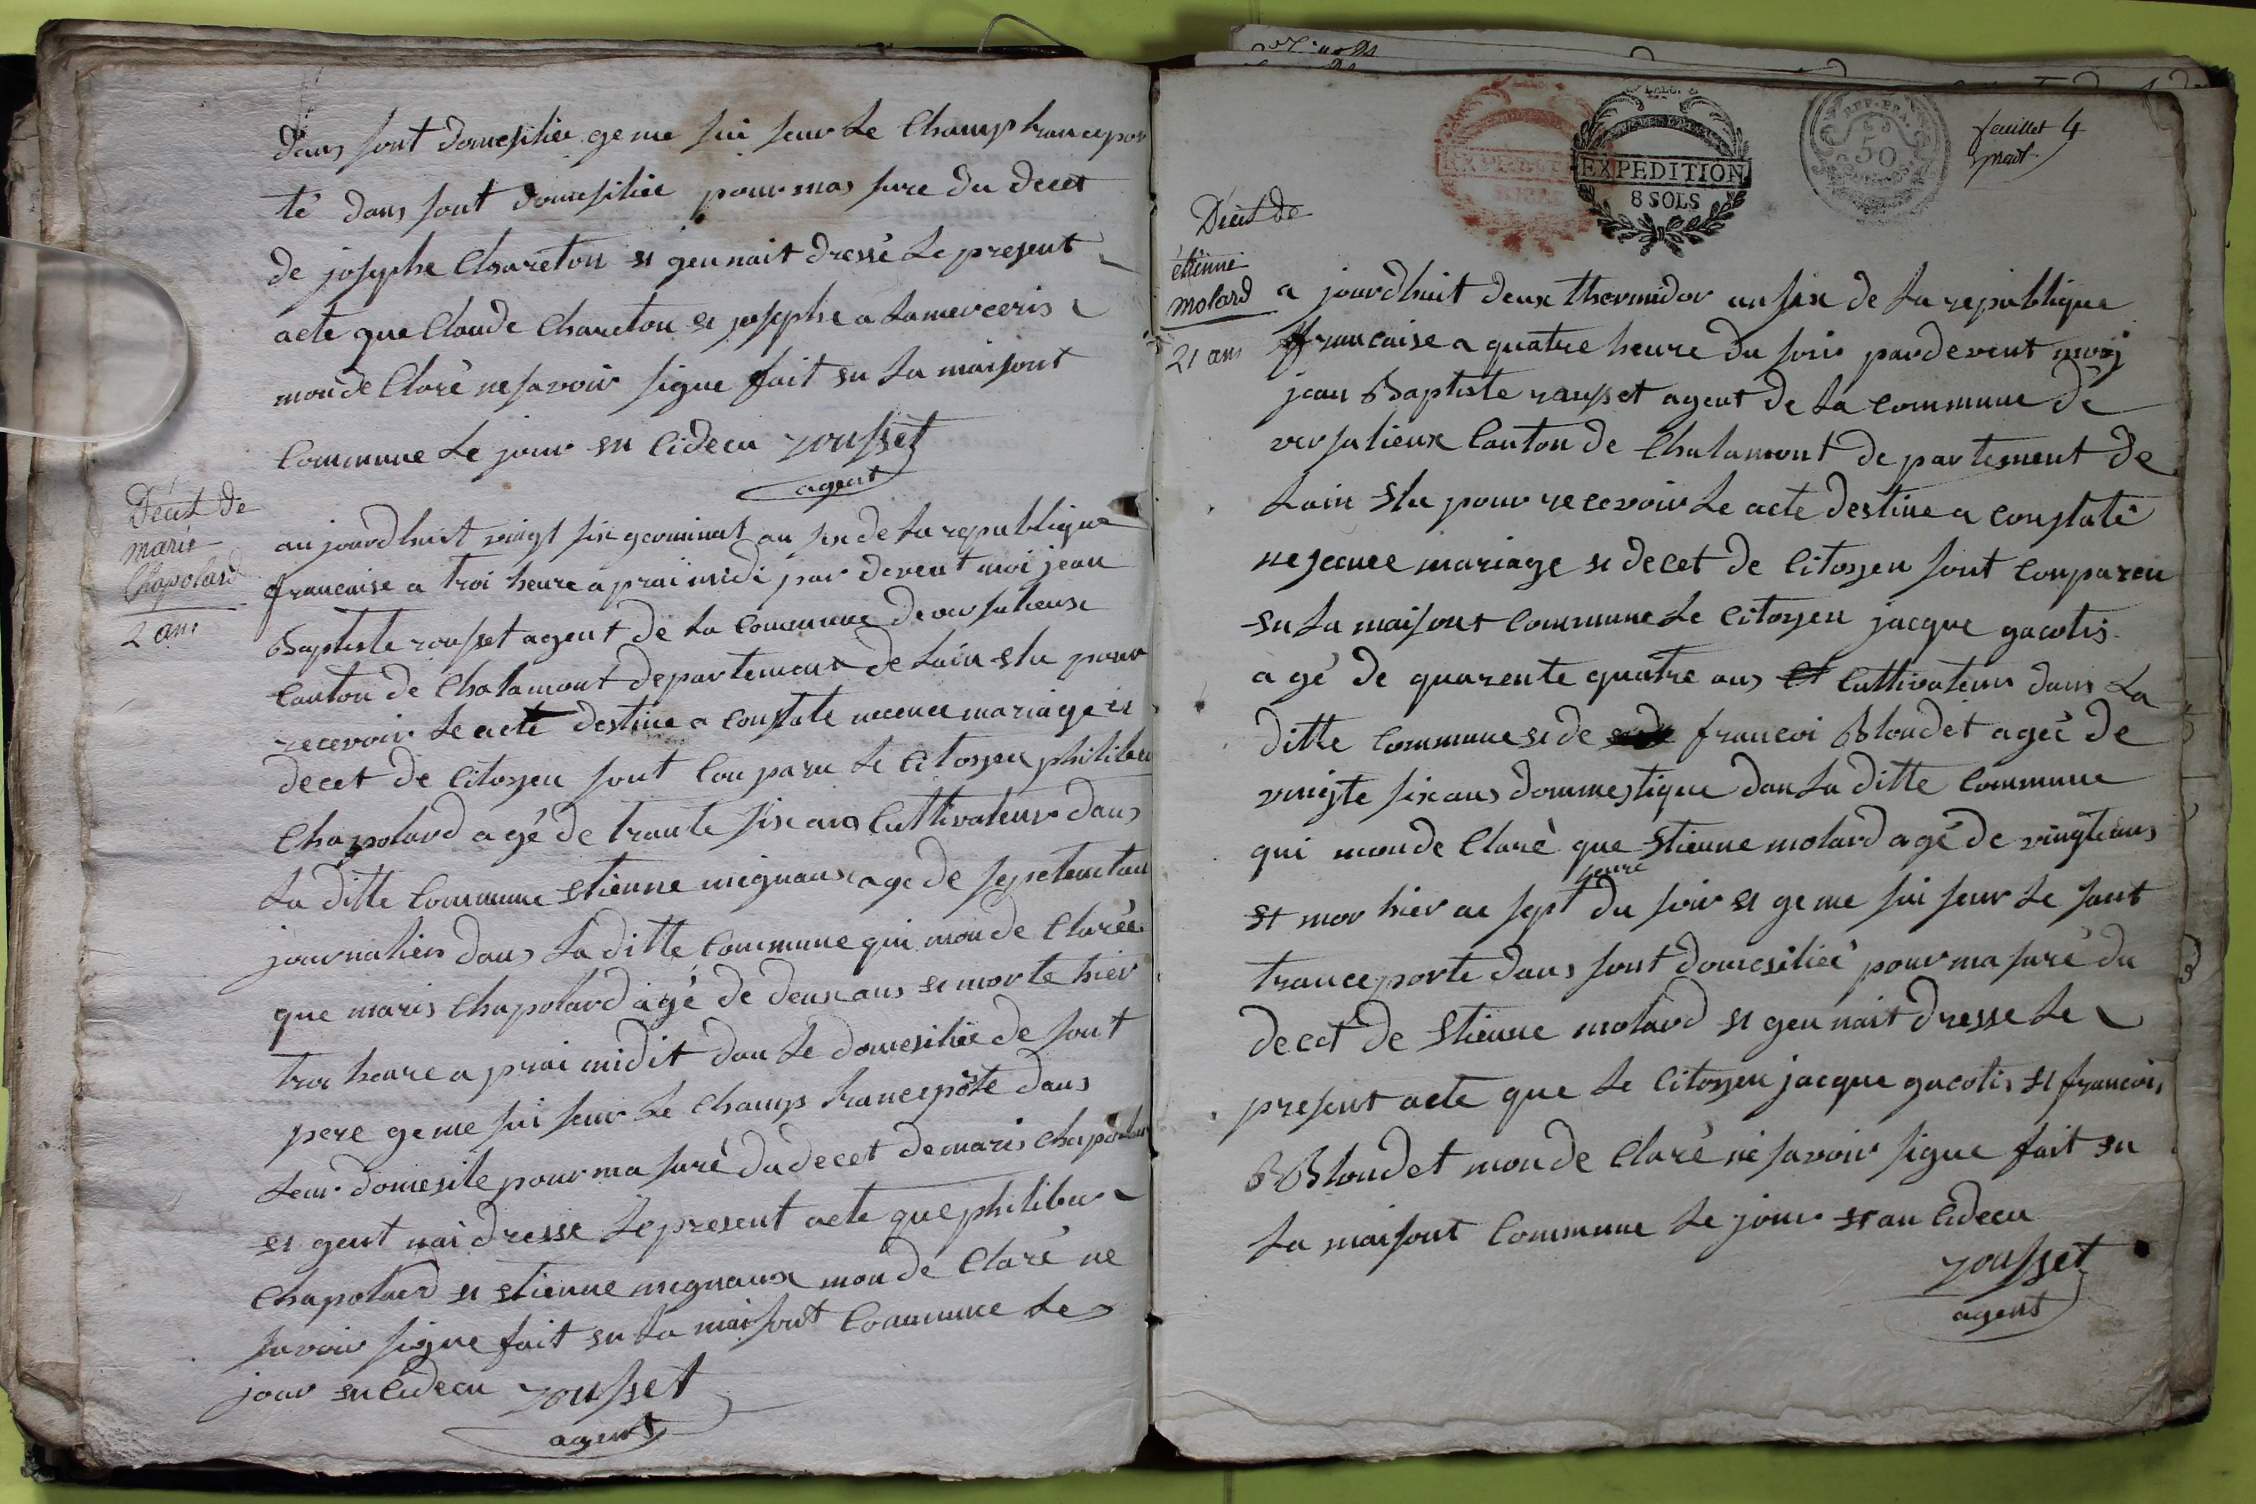 dans sont domesiliee ge me sui seur le Champ trancepor
té dans sont domesiliee pour mas sure du decet
de josephe Chareton et gennait dressé le present
acte que Claude Chareton et josephe a lamerceris
mon de Claré ne savoir signe fait en la maisont
Commune le jour en cideçu rousset
agent
Décit de
marie
Chapolard
2 ans
au jourdhuit vingt six germinal an six de la republique
francaise a troi heure a prai midi par devent moi jean
Baptiste rousset agent de la Commune de versalieux
Canton de Chalamont departement de lain elu pour
recevoir le acte destine a constate necence mariage et
decet de Citoyen sont Conparu le Citoyen philiber
Chapolard a gé de trante six ans Cultivateur dans
la ditte Commune etienne mignaux age de
journalier dans la ditte Commune qui mon de Clarée
que maris Chapolard agé de deux ans et morte hier
troi heure a prai midit dan le domesiliee de sont
pere ge me sui seur le Champ trancepôte dans
leur domesile pour ma suré du decet de maris Chapolar
et gent nai dresse le present acte que philiber
Chapolard et etienne mignaux mon de Claré ne
savoir signe fait en la maisont Commune le
jour en cideçu rousset
agent
feuillet 4
EXPEDITION
8 SOLS
REP. FRA.
50
Décit de
étienne
molard
21 ans
a jourdhuit deux thermidor an six de la republique
francaise a quatre heure du soir pardevent moij
jean Baptiste rousset agent de la Commune de
versalieux Canton de Chalamont departement de
lain elu pour recevoir le acte destine a constaté
nejcence mariage et decet de Citoyen sont Conpareu
en la maisont Commune le Citoyen jacque gacotis
a gé de quarente quatre ans et Cultivateur dans la
ditte Commune et de francoi Blondet agéé de
vingte six ans dommestique dan la ditte Commune
qui mon de Claré que etienne molard agé de vingteans
et mor hier ae sept heure du soir et ge me sui seur le sant
tranceporte dans sont domesiliéé pour ma suré du
decet de etienne molard et gen nait dresse le
present acte que le Citoyen jacque gacotis et francois
B Blondet mon de Claré né savoir signe fait en
la maisont Commune le jour et an cideçu
rousset
agent